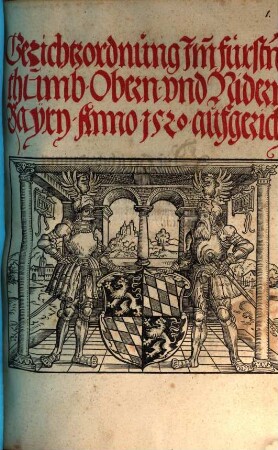 1.
Gerichtzordnung Im fürstn
thumb Obern vnd Nidern
Bayrn Anno 1520 aufgerich